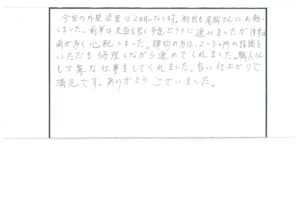 今回の外壁塗装は2回目になります。前回も星岡さんにお願い
しました。前半は天気も良く予定どうりに進みましたが後半は
雨が多く心配しました。建物の方は、2~3ヶ所の指摘を
いただき修理しながら進めてくれました。職人さん
も丁寧な仕事をしてくれました。良い仕上がりで
満足です。ありがとうございました。